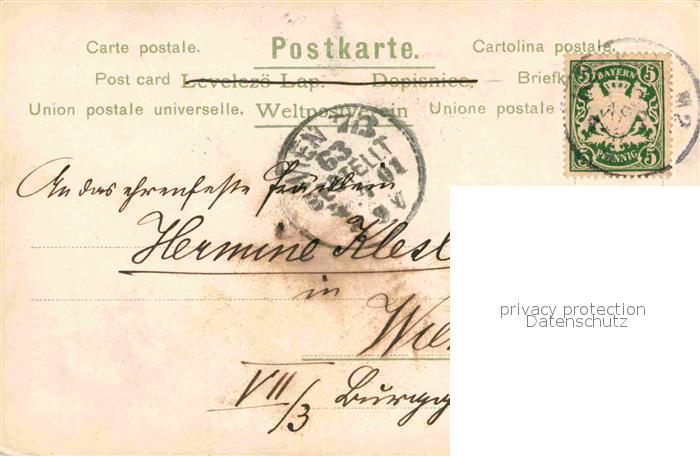 Carte postale. Postkarte. Cartolina postale.
Post card Levelező Lap. Dopisnice. Briefk
Union postale universelle. Weltpostverein Unione postale
5 BAYERN 5
5 PFENNIG 5
WIEN
An das ehrenfeste Fräulein
Hermine Klesl
in
Wie
VII/3 Burgg
privacy protection
Datenschutz